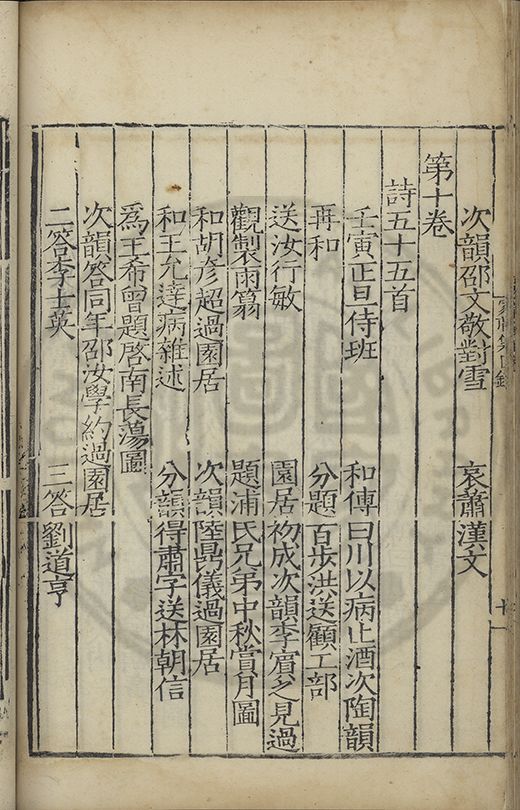 次韻邵文敬對雪　哀蕭漢文
第十卷
詩五十五首
壬寅正旦侍班　和傅曰川以病止酒次陶韻
再和　分題百步洪送顧工部
送汝行敏　園居初成次韻李賓之見過
觀製雨篛　題浦氏兄弟中秋賞月圖
和胡彥超過園居　次韻陸鼎儀過園居
和王允達病雜述　分韻得肅字送林朝信
為王希曾題啓南長蕩圖
次韻答同年邵汝學約過園居
二答李士英　三答劉道亨